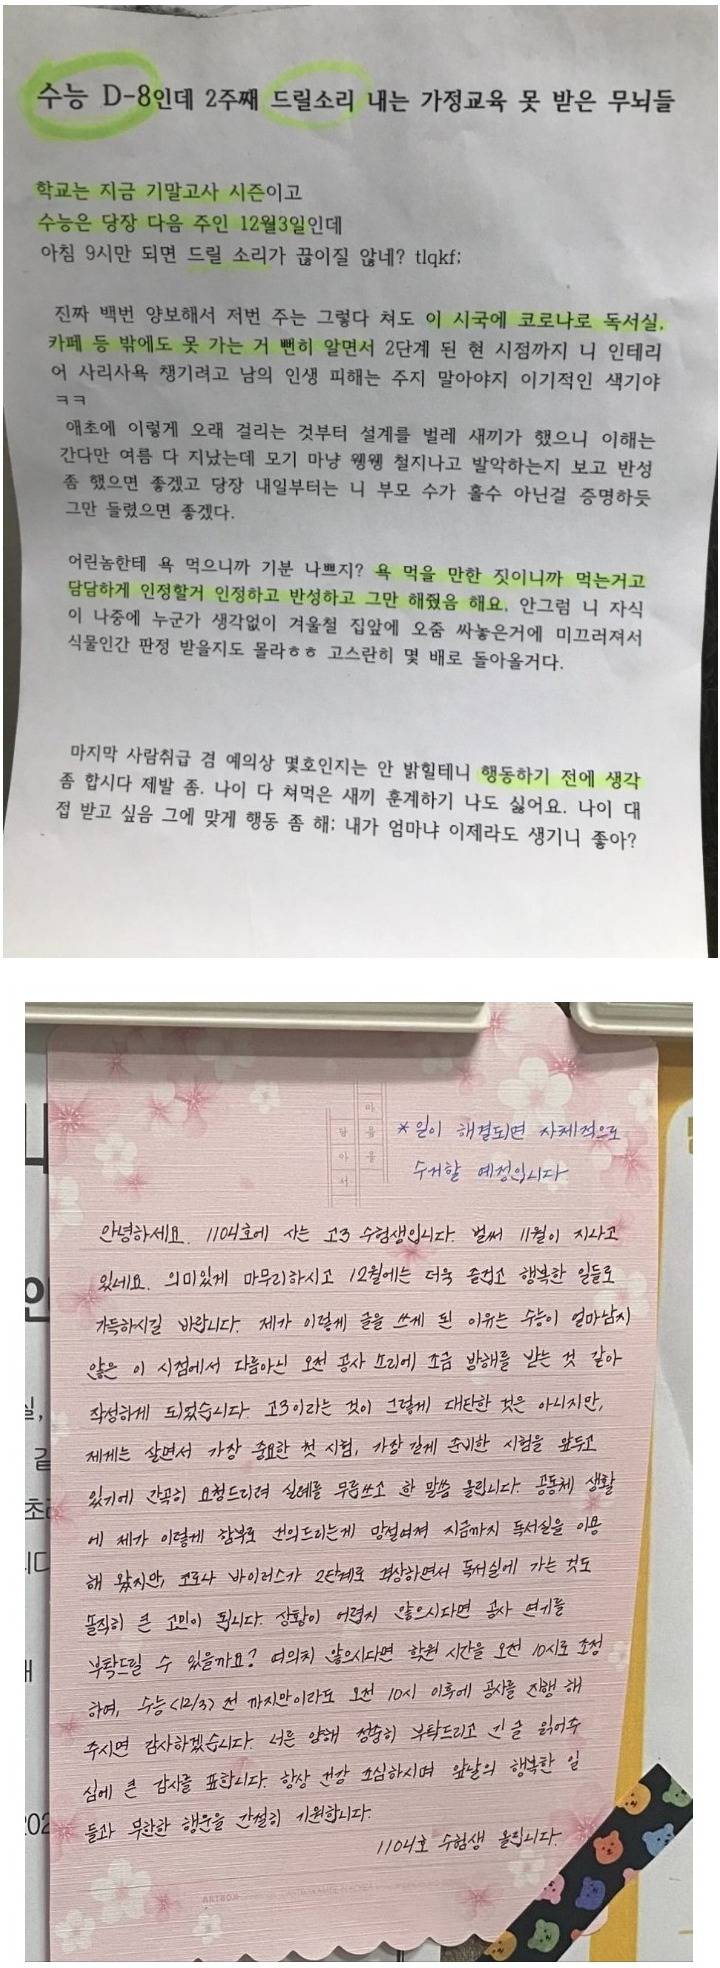 수능 D-8인데 2주째 드릴소리 내는 가정교육 못 받은 무뇌들
학교는 지금 기말고사 시즌이고
수능은 당장 다음 주인 12월3일인데
아침 9시만 되면 드릴 소리가 끊이질 않네? tlqkf;
진짜 백번 양보해서 저번 주는 그렇다 쳐도 이 시국에 코로나로 독서실,
카페 등 밖에도 못 가는 거 뻔히 알면서 2단계 된 현 시점까지 니 인테리
어 사리사욕 챙기려고 남의 인생 피해는 주지 말아야지 이기적인 색기야
ㅋㅋ
애초에 이렇게 오래 걸리는 것부터 설계를 벌레 새끼가 했으니 이해는
간다만 여름 다 지났는데 모기 마냥 웽웽 철지나고 발악하는지 보고 반성
좀 했으면 좋겠고 당장 내일부터는 니 부모 수가 홀수 아닌걸 증명하듯
그만 들렸으면 좋겠다.
어린놈한테 욕 먹으니까 기분 나쁘지? 욕 먹을 만한 짓이니까 먹는거고
담담하게 인정할거 인정하고 반성하고 그만 해줬음 해요. 안그럼 니 자식
이 나중에 누군가 생각없이 겨울철 집앞에 오줌 싸놓은거에 미끄러져서
식물인간 판정 받을지도 몰라ㅎㅎ 고스란히 몇 배로 돌아올거다.
마지막 사람취급 겸 예의상 몇호인지는 안 밝힐테니 행동하기 전에 생각
좀 합시다 제발 좀. 나이 다 쳐먹은 새끼 훈계하기 나도 싫어요. 나이 대
접 받고 싶음 그에 맞게 행동 좀 해; 내가 엄마냐 이제라도 생기니 좋아?
마음을
담아서
*일이 해결되면 자체적으로
수거할 예정입니다
안녕하세요. 1104호에 사는 고3 수험생입니다. 벌써 11월이 지나고
있네요. 의미있게 마무리하시고 12월에는 더욱 즐겁고 행복한 일들로
가득하시길 바랍니다. 제가 이렇게 글을 쓰게 된 이유는 수능이 얼마남지
않은 이 시점에서 다름아닌 오전 공사 소리에 조금 방해를 받는 것 같아
작성하게 되었습니다. 고3이라는 것이 그렇게 대단한 것은 아니지만,
제게는 살면서 가장 중요한 첫 시험, 가장 길게 준비한 시험을 앞두고
있기에 간곡히 요청드리려 실례를 무릅쓰고 한 말씀 올립니다. 공동체 생활
에 제가 이렇게 함부로 건의드리는게 망설여져 지금까지 독서실을 이용
해 왔지만, 코로나 바이러스가 2단계로 격상하면서 독서실에 가는 것도
솔직히 큰 고민이 됩니다. 상황이 어렵지 않으시다면 공사 연기를
부탁드릴 수 있을까요? 여의치 않으시다면 학원 시간을 오전 10시로 조정
하여, 수능(12/3) 전 까지만이라도 오전 10시 이후에 공사를 진행 해
주시면 감사하겠습니다. 너른 양해 정중히 부탁드리고 긴 글 읽어주
심에 큰 감사를 표합니다. 항상 건강 조심하시며 앞날의 행복한 일
들과 무한한 행운을 간절히 기원합니다.
1104호 수험생 올립니다.